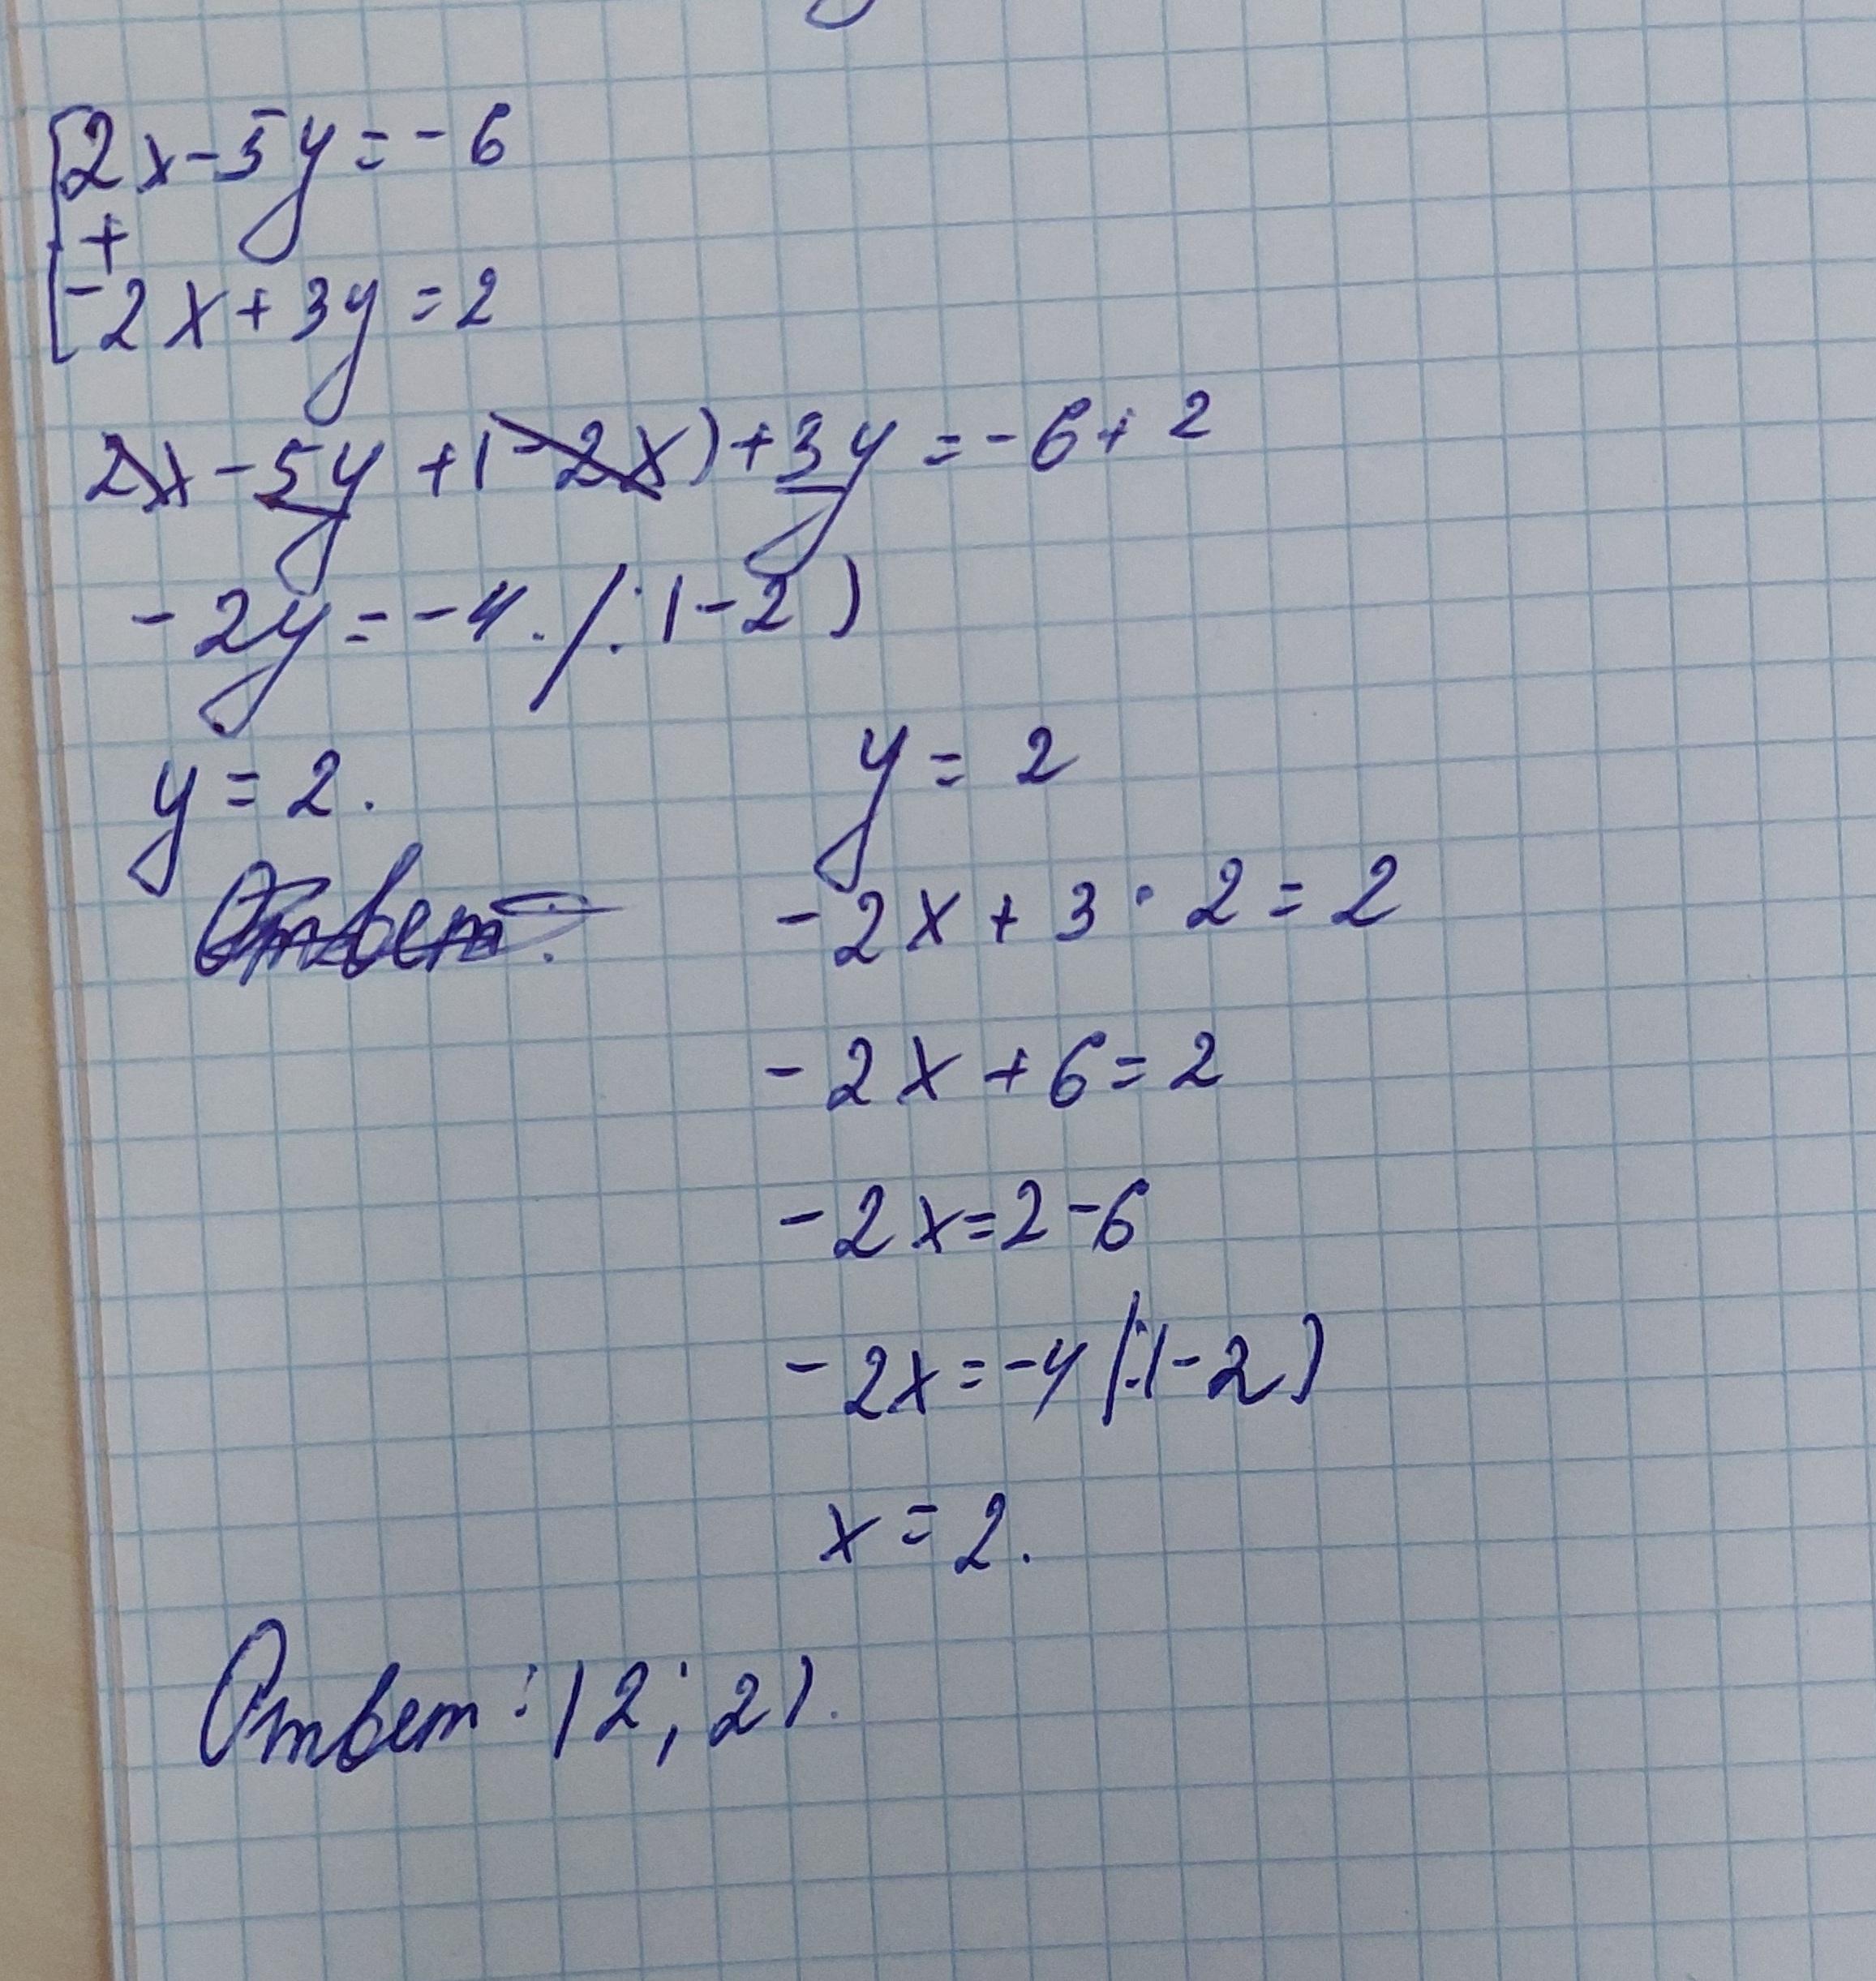 2x-5y=-6
+
-2x+3y=2
2x-5y+(-2x)+3y=-6+2
-2y=-4. /:(-2)
y=2.
Ответ:
y=2
-2x+3·2=2
-2x+6=2
-2x=2-6
-2x=-4/:(-2)
x=2.
Ответ: (2; 2).